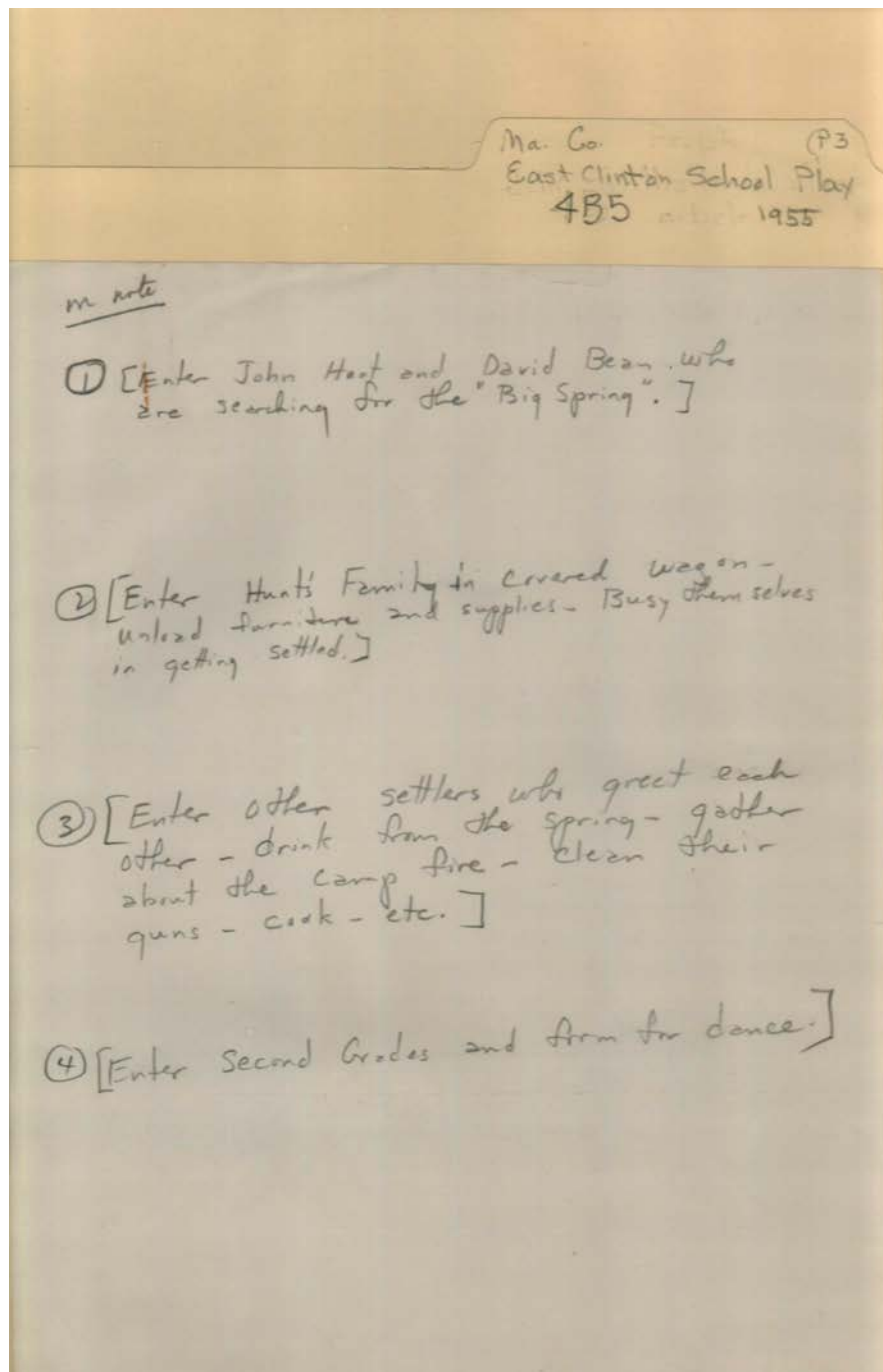 Ma. Co. (P3
East Clinton School Play
4B5 1955
m note
① [Enter John Hunt and David Bean who
are searching for the "Big Spring". ]
② [Enter Hunt's Family in covered wagon -
unload furniture and supplies - Busy themselves
in getting settled.]
③ [Enter other settlers who greet each
other - drink from the spring - gather
about the camp fire - clean their
guns - cook - etc. ]
④ [Enter Second Grades and form for dance.]